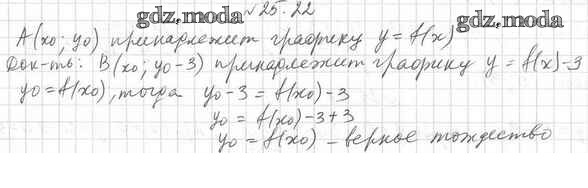 gdz.moda №25.22 gdz.moda
A(x0; y0) принадлежит графику y = f(x)
Док-ть: B(x0; y0-3) принадлежит графику y = f(x)-3
y0 = f(x0), тогда y0-3 = f(x0)-3
y0 = f(x0)-3+3
y0 = f(x0) - верное тождество